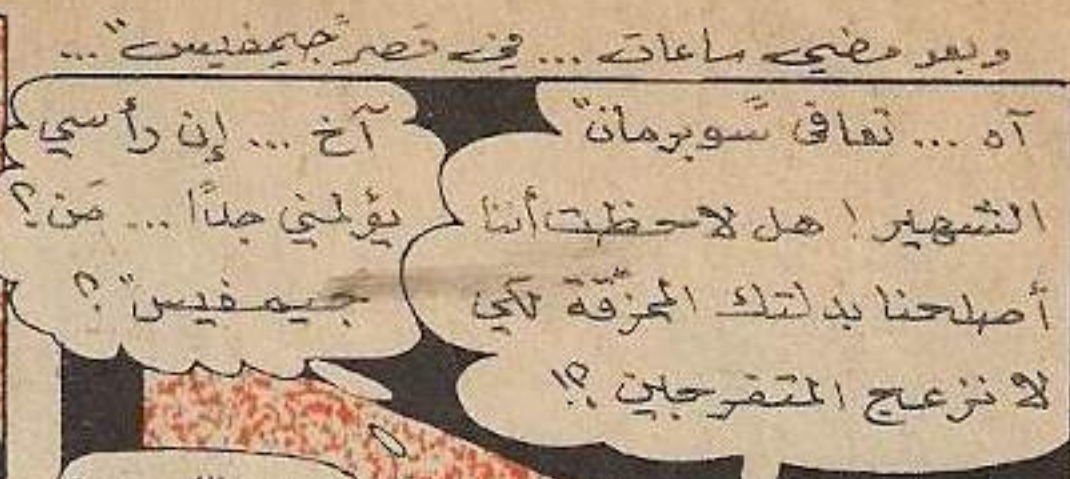 وبعد مضي ساعات ... في قصر "جيمفيس" ...
آه ... تعافى "سوبرمان"
الشهير! هل لاحظت أننا
أصلحنا بدلتك الممزّقة لكي
لا نزعج المتفرجين ؟!
آخ ... إن رأسي
يؤلمني جدًا ... مَن؟
"جيمفيس"؟